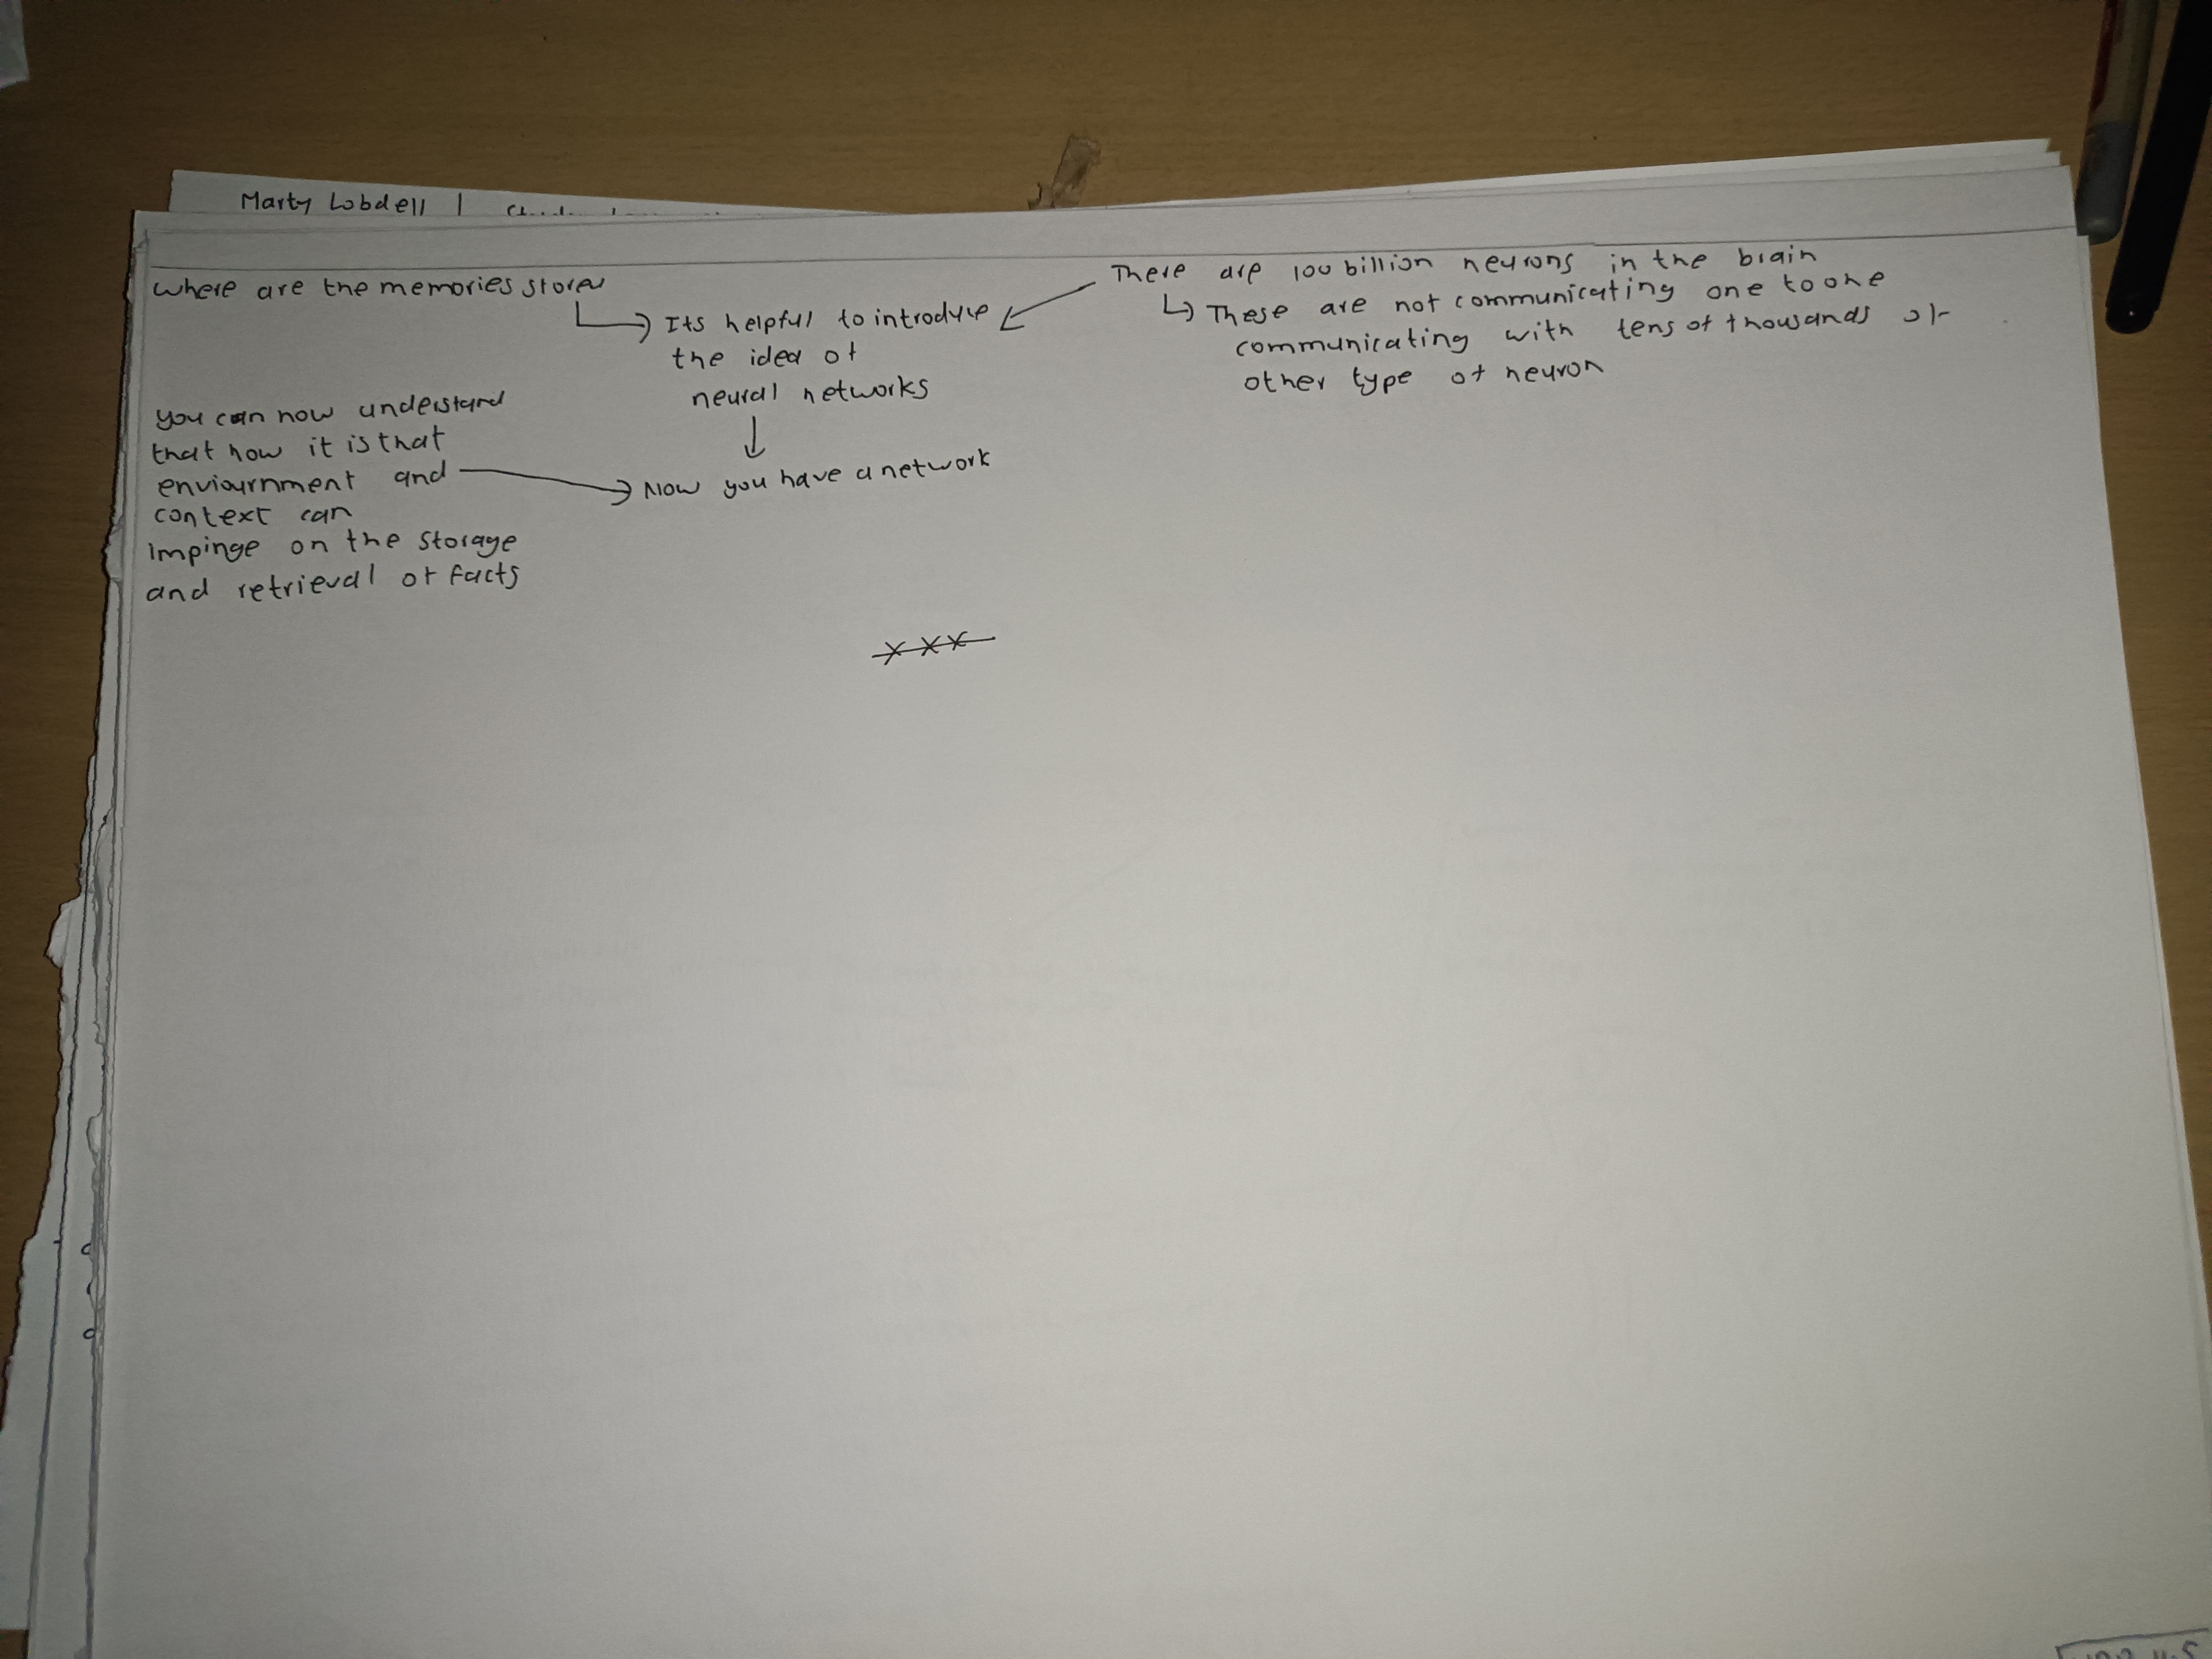 Marty Lobdell |
where are the memories stored
Its helpful to introduce
the idea of
neural networks
There are 100 billion neurons in the brain
These are not communicating one to one
communicating with tens of thousands of
other type of neuron
Now you have a network
you can now understand
that how it is that
enviournment and
context can
impinge on the storage
and retrieval of facts
xxx